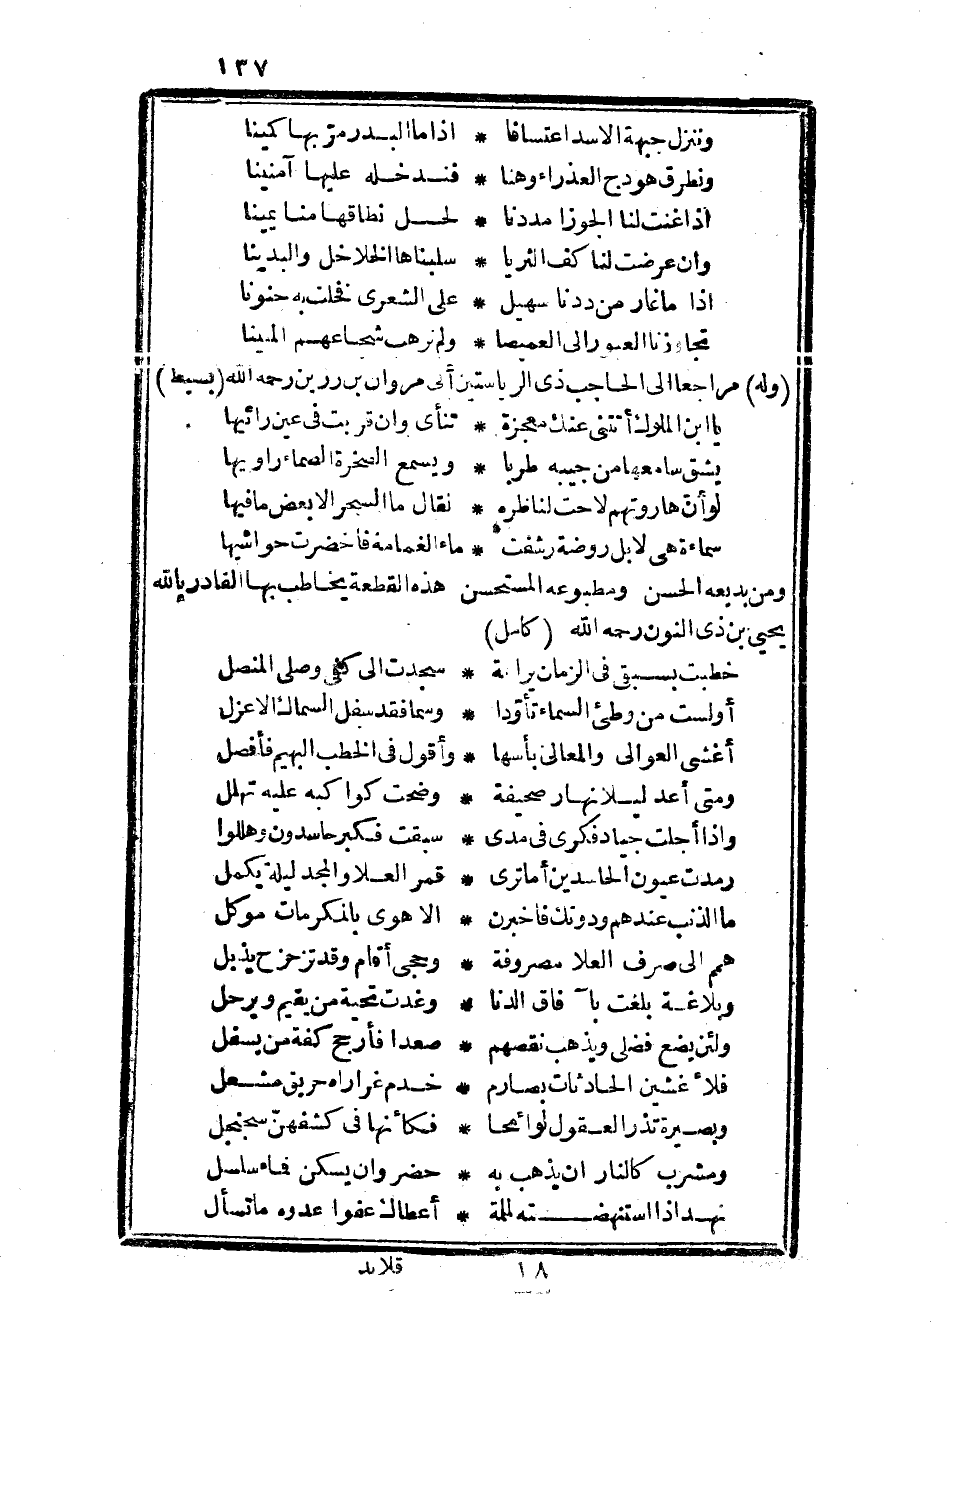 ١٣٧
وننزل جبهة الاسد اعتسافا * اذا ما البدر مر بها كمينا
ونطرق هودج العذراء وهنا * فندخله عليها آمنينا
اذا غنت لنا الجوزا مددنا * لحل نطاقها منا يمينا
وان عرضت لنا كف الثريا * سلبناها الخلاخل والبدينا
اذا ما غار من ددنا سهيل * على الشعرى فخلت به جنونا
تجاوزنا العبور الى الغميصا * ولم نرهب شجاعهم المبينا
(وله) مراجعا الى الحاجب ذى الرياستين أبى مروان بن رزين رحمه الله (بسيط)
يا ابن الملوك أتتنى عنك معجزة * تنأى وان قربت فى عين رائيها
يشق سامعها من جيبه طربا * ويسمع الصخرة الصماء راويها
لو أن هاروتهم لاحت لناظره * لقال ما السحر الا بعض ما فيها
سماءة هى لا بل روضة رشفت * ماء الغمامة فاخضرت حواشيها
ومن بديعه الحسن ومطبوعه المستحسن هذه القطعة يخاطب بها القادر بالله
يحيى بن ذى النون رحمه الله (كامل)
خطبت بسبق فى الزمان براعة * سجدت الى كفى وصلى المنصل
أولست من وطئ السماء تأودا * وسما فقد سفل السماك الاعزل
أغشى العوالى والمعالى بأسها * وأقول فى الخطب البهيم فأفصل
ومتى أعد ليلا نهار صحيفة * وضحت كواكبه عليه تهلل
واذا أجلت جياد فكرى فى مدى * سبقت فكبر حاسدون وهللوا
رمدت عيون الحاسدين أما ترى * قمر العلا والمجد ليلة يكمل
ما الذنب عندهم ودونك فاخبرن * الا هوى بالمكرمات موكل
همم الى صرف العلا مصروفة * وحجى أقام وقد تزحزح يذبل
وبلاغة بلغت بآفاق الدنا * وغدت تحية من يقيم ويرحل
ولئن يضع فضلى ويذهب نقصهم * صعدا فأرجح كفة من يسفل
فلأغشين الحادثات بصارم * خدم غراراه حريق مشعل
وبصيرة تذر العقول لوائحا * فكأنها فى كشفهن سجنجل
ومشرب كالنار ان يذهب به * حضر وان يسكن فماء سلسل
نهد اذا استنهضته لملمة * أعطاك عفوا عدوه ما تسأل
١٨ قلائد